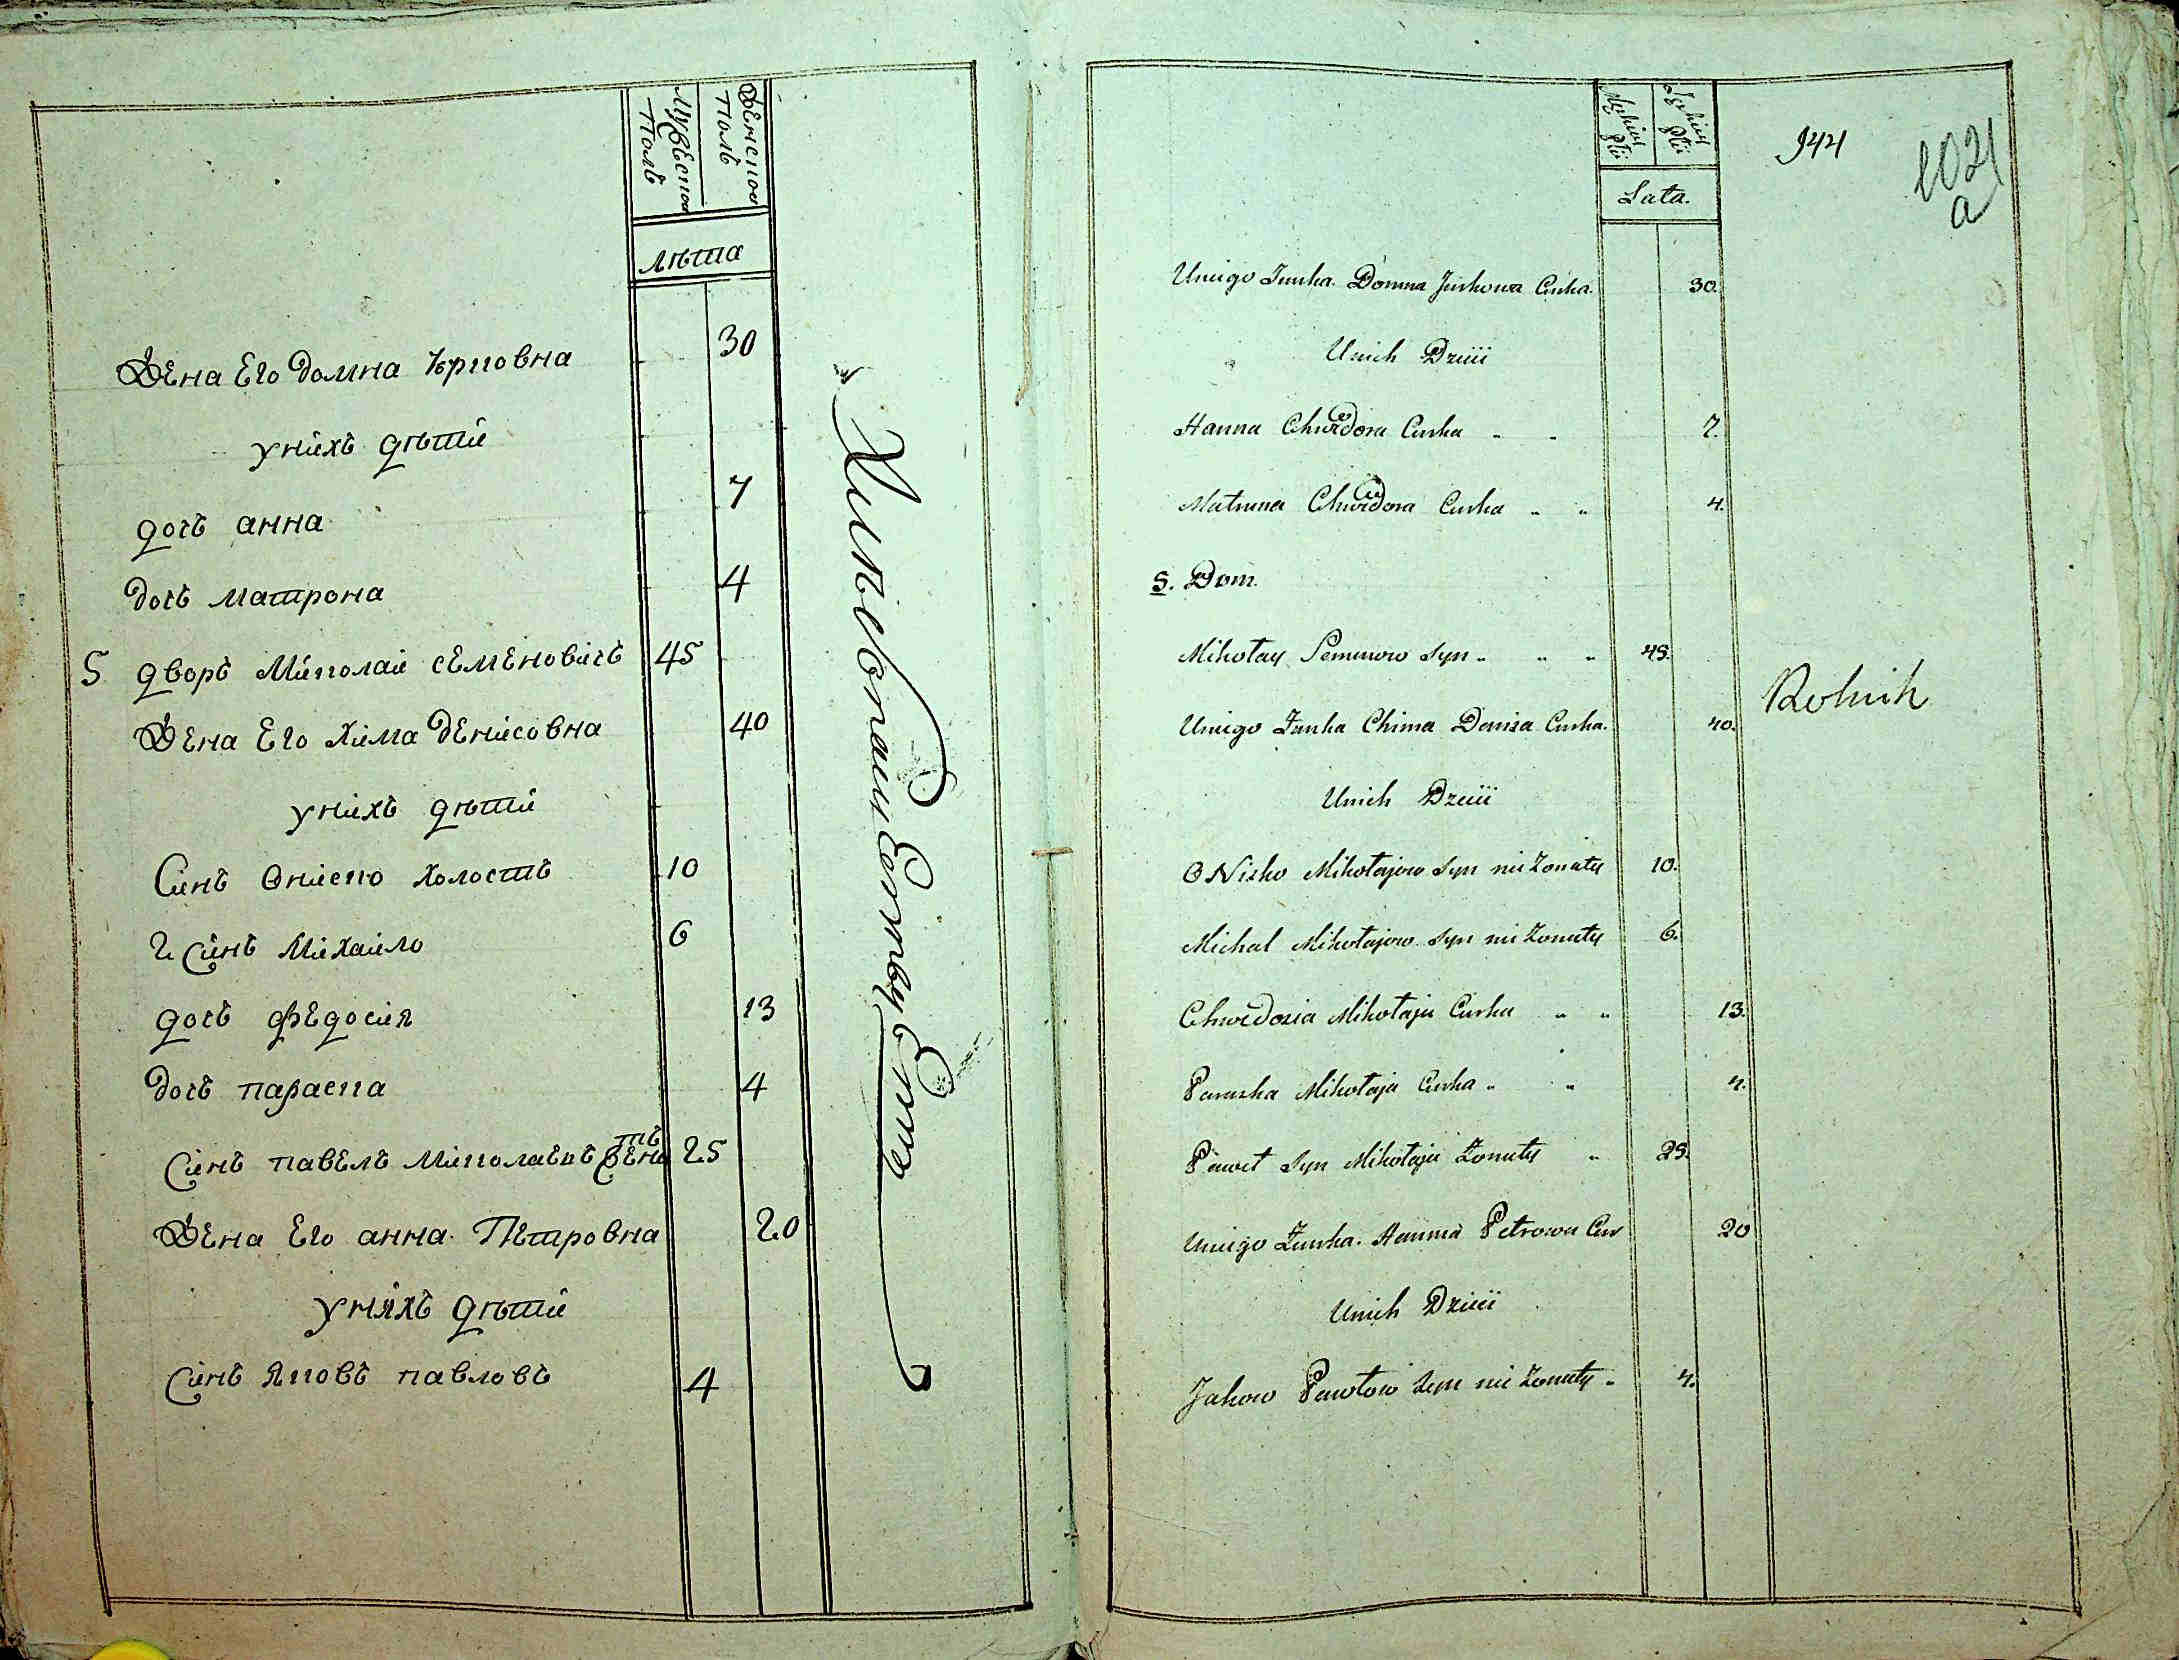 Мужеска Полъ
Женска Полъ
лѣта
Жена Его Домна Юрковна 30
у нихъ дѣти
дочь анна 7
дочь матрона 4
5 дворъ Миколай семеновичъ 45
Жена Его Хима Денисовна 40
у нихъ дѣти
Синъ Ониско холостъ 10
2 синъ Михайло 6
дочь федосия 13
дочь параска 4
Синъ павелъ Миколаевъ женатъ 25
Жена Его анна Петровна 20
у нихъ дѣти
Синъ Яковъ павловъ 4
944
1021
a
Męskiey Płci
Żeńskiey Płci
Lata.
Uniego Żunka. Domna Jurkowa Curka. 30.
Unich Dzieii
Hanna Chwedora Curka „ „ 7.
Matruna Chwedora Curka „ „ 4.
5. Dom.
Mikołay Semenow Syn „ „ „ 45.
Uniego Żunka Chima Denisa Curka. 40.
Rolnik
Unich Dzieii
ONisko Mikołajow Syn nie Żonaty 10.
Michal Mikołajow Syn nie Żonaty 6.
Chwedosia Mikołaja Curka „ „ 13.
Paraska Mikołaja Curka „ „ 4.
Paweł Syn Mikołaja Żonaty „ 25.
Uniego Żunka. Hanna Petrowa Cur 20
Unich Dzieii
Jakow Pawłow Syn nie Żonaty „ 4.